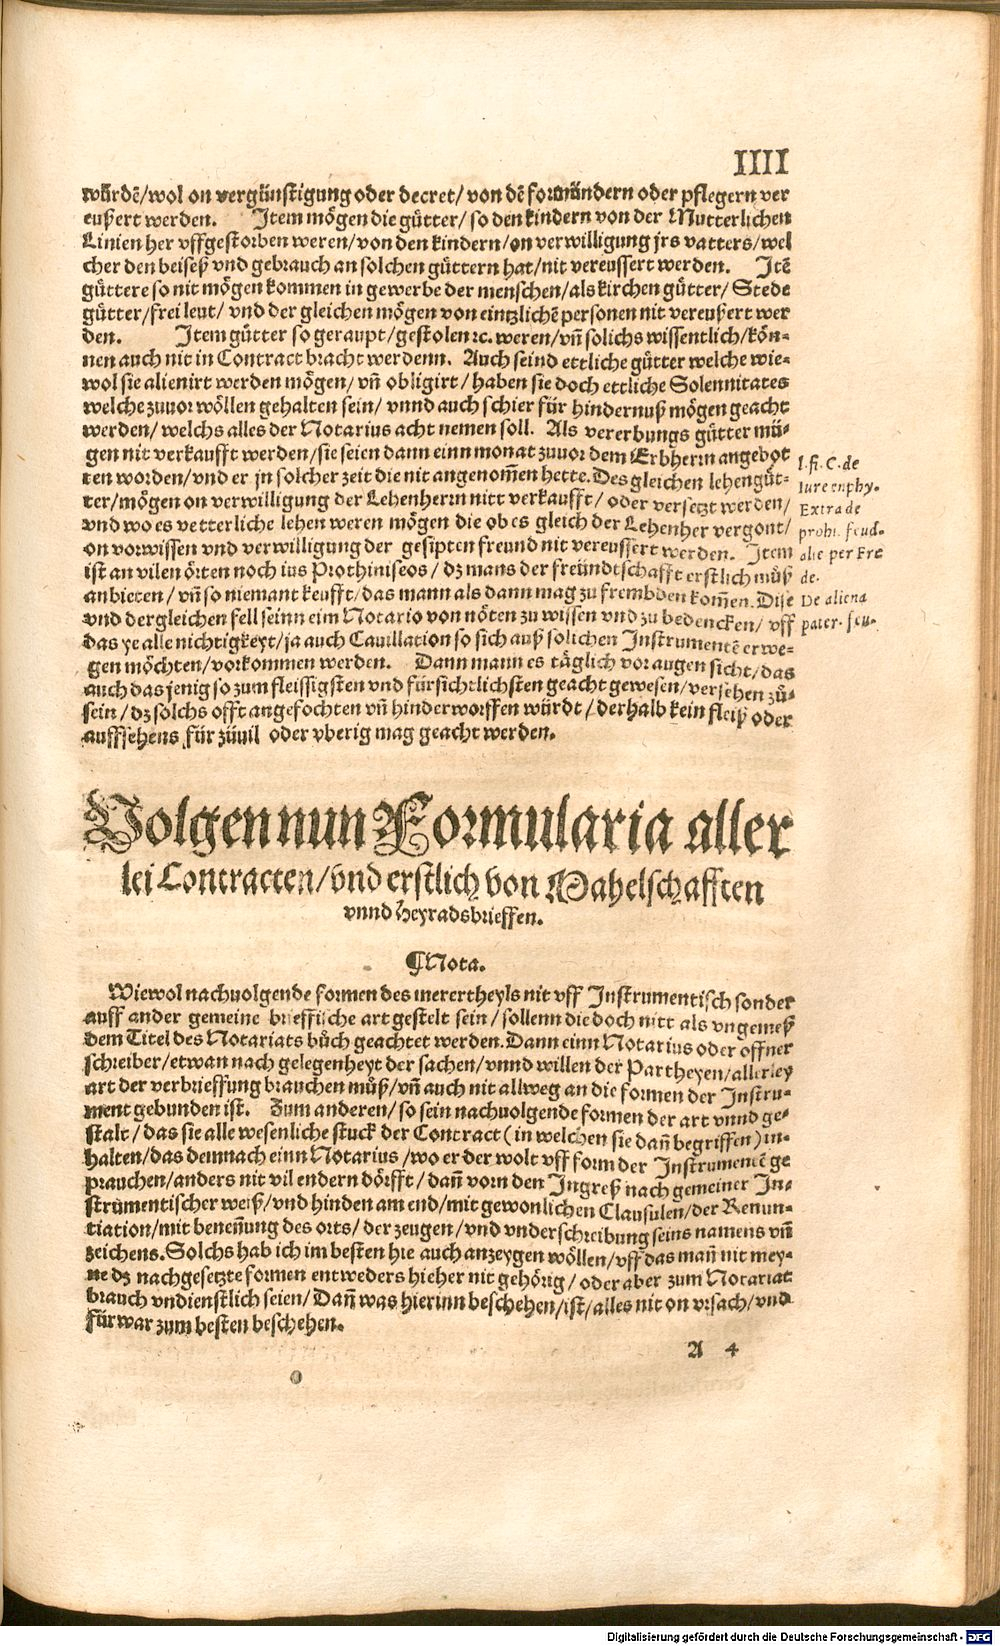 IIII
würdẽ/wol on vergünstigung oder decret/ von dẽ formündern oder pflegern ver
eußert werden. Item mögen die gütter/ so den kindern von der Mutterlichen
Linien her vffgestorben weren/von den kindern/on verwilligung jrs vatters/wel
cher den beiseß vnd gebrauch an solchen güttern hat/nit vereussert werden. Itẽ
güttere so nit mögen kommen in gewerbe der menschen/als kirchen gütter/ Stede
gütter/frei leut/ vnd der gleichen mögen von eintzlichẽ personen nit vereußert wer
den. Item gütter so geraupt/gestolen ꝛc. weren/vñ solichs wissentlich/kön-
nen auch nit in Contract bracht werdenn. Auch seind ettliche gütter welche wie-
wol sie alienirt werden mögen/ vñ obligirt/ haben sie doch ettliche Solennitates
welche zuuor wöllen gehalten sein/ vnnd auch schier für hindernuß mögen geacht
werden/ welchs alles der Notarius acht nemen soll. Als vererbungs gütter mü-
gen nit verkaufft werden/sie seien dann einn monat zuuor dem Erbherrn angebot
ten worden/vnd er jn solcher zeit die nit angenom̃en hette. Des gleichen lehengüt-
ter/mögen on verwilligung der Lehenherrn nitt verkaufft/ oder versetzt werden/
vnd wo es vetterliche lehen weren mögen die ob es gleich der Lehenher vergont/
on vorwissen vnd verwilligung der gesipten freund nit vereussert werden. Item
ist an vilen örten noch ius Prothiniseos/ dz mans der freündtschafft erstlich müß
anbieten/ vñ so niemant keufft/das mann als dann mag zu frembden kom̃en. Dise
vnd dergleichen fell seinn eim Notario von nöten zu wissen vnd zu bedencken/ vff
das ye alle nichtigkeyt/ja auch Cauillation so sich auß solichen Instrumentẽ erwe-
gen möchten/vorkommen werden. Dann mann es täglich vor augen sicht/das
auch das jenig so zum fleissigsten vnd fürsichtlichsten geacht gewesen/versehen zů-
sein/dz solchs offt angefochten vñ hinderworffen würdt/derhalb kein fleiß oder
auffsehens für züuil oder vberig mag geacht werden.
l. fi. C. de
Iure enphy.
Extra de
prohi. feud.
alie per Fre
de.
De aliena
pater. feu.
Volgen nun Formularia aller
lei Contracten/vnd erstlich von Mahelschafften
vnnd Heyradsbrieffen.
¶Nota.
Wiewol nachuolgende formen des merertheyls nit vff Instrumentisch sonder
auff ander gemeine brieffische art gestelt sein/ sollenn die doch nitt als vngemeß
dem Titel des Notariats bůch geachtet werden. Dann einn Notarius oder offner
schreiber/etwan nach gelegenheyt der sachen/vnnd willen der Partheyen/allerley
art der verbrieffung brauchen můß/vñ auch nit allweg an die formen der Instru-
ment gebunden ist. Zum anderen/so sein nachuolgende formen der art vnnd ge-
stalt/das sie alle wesenliche stuck der Contract (in welchen sie dañ begriffen) in-
halten/das demnach einn Notarius/wo er der wolt vff form der Instrumentẽ ge
prauchen/anders nit vil endern dörfft/ dañ vorn den Ingreß nach gemeiner In-
strumentischer weiß/vnd hinden am end/mit gewonlichen Clausulen/der Renun-
tiation/mit beneñung des orts/ der zeugen/vnd vnderschreibung seins namens vñ
zeichens. Solchs hab ich im besten hie auch anzeygen wöllen/vff das mañ nit mey-
ne dz nachgesetzte formen entweders hieher nit gehörig/ oder aber zum Notariat
brauch vndienstlich seien/ Dañ was hierinn beschehen/ist/alles nit on vrsach/vnd
für war zum besten beschehen.
A 4
Digitalisierung gefördert durch die Deutsche Forschungsgemeinschaft - DFG